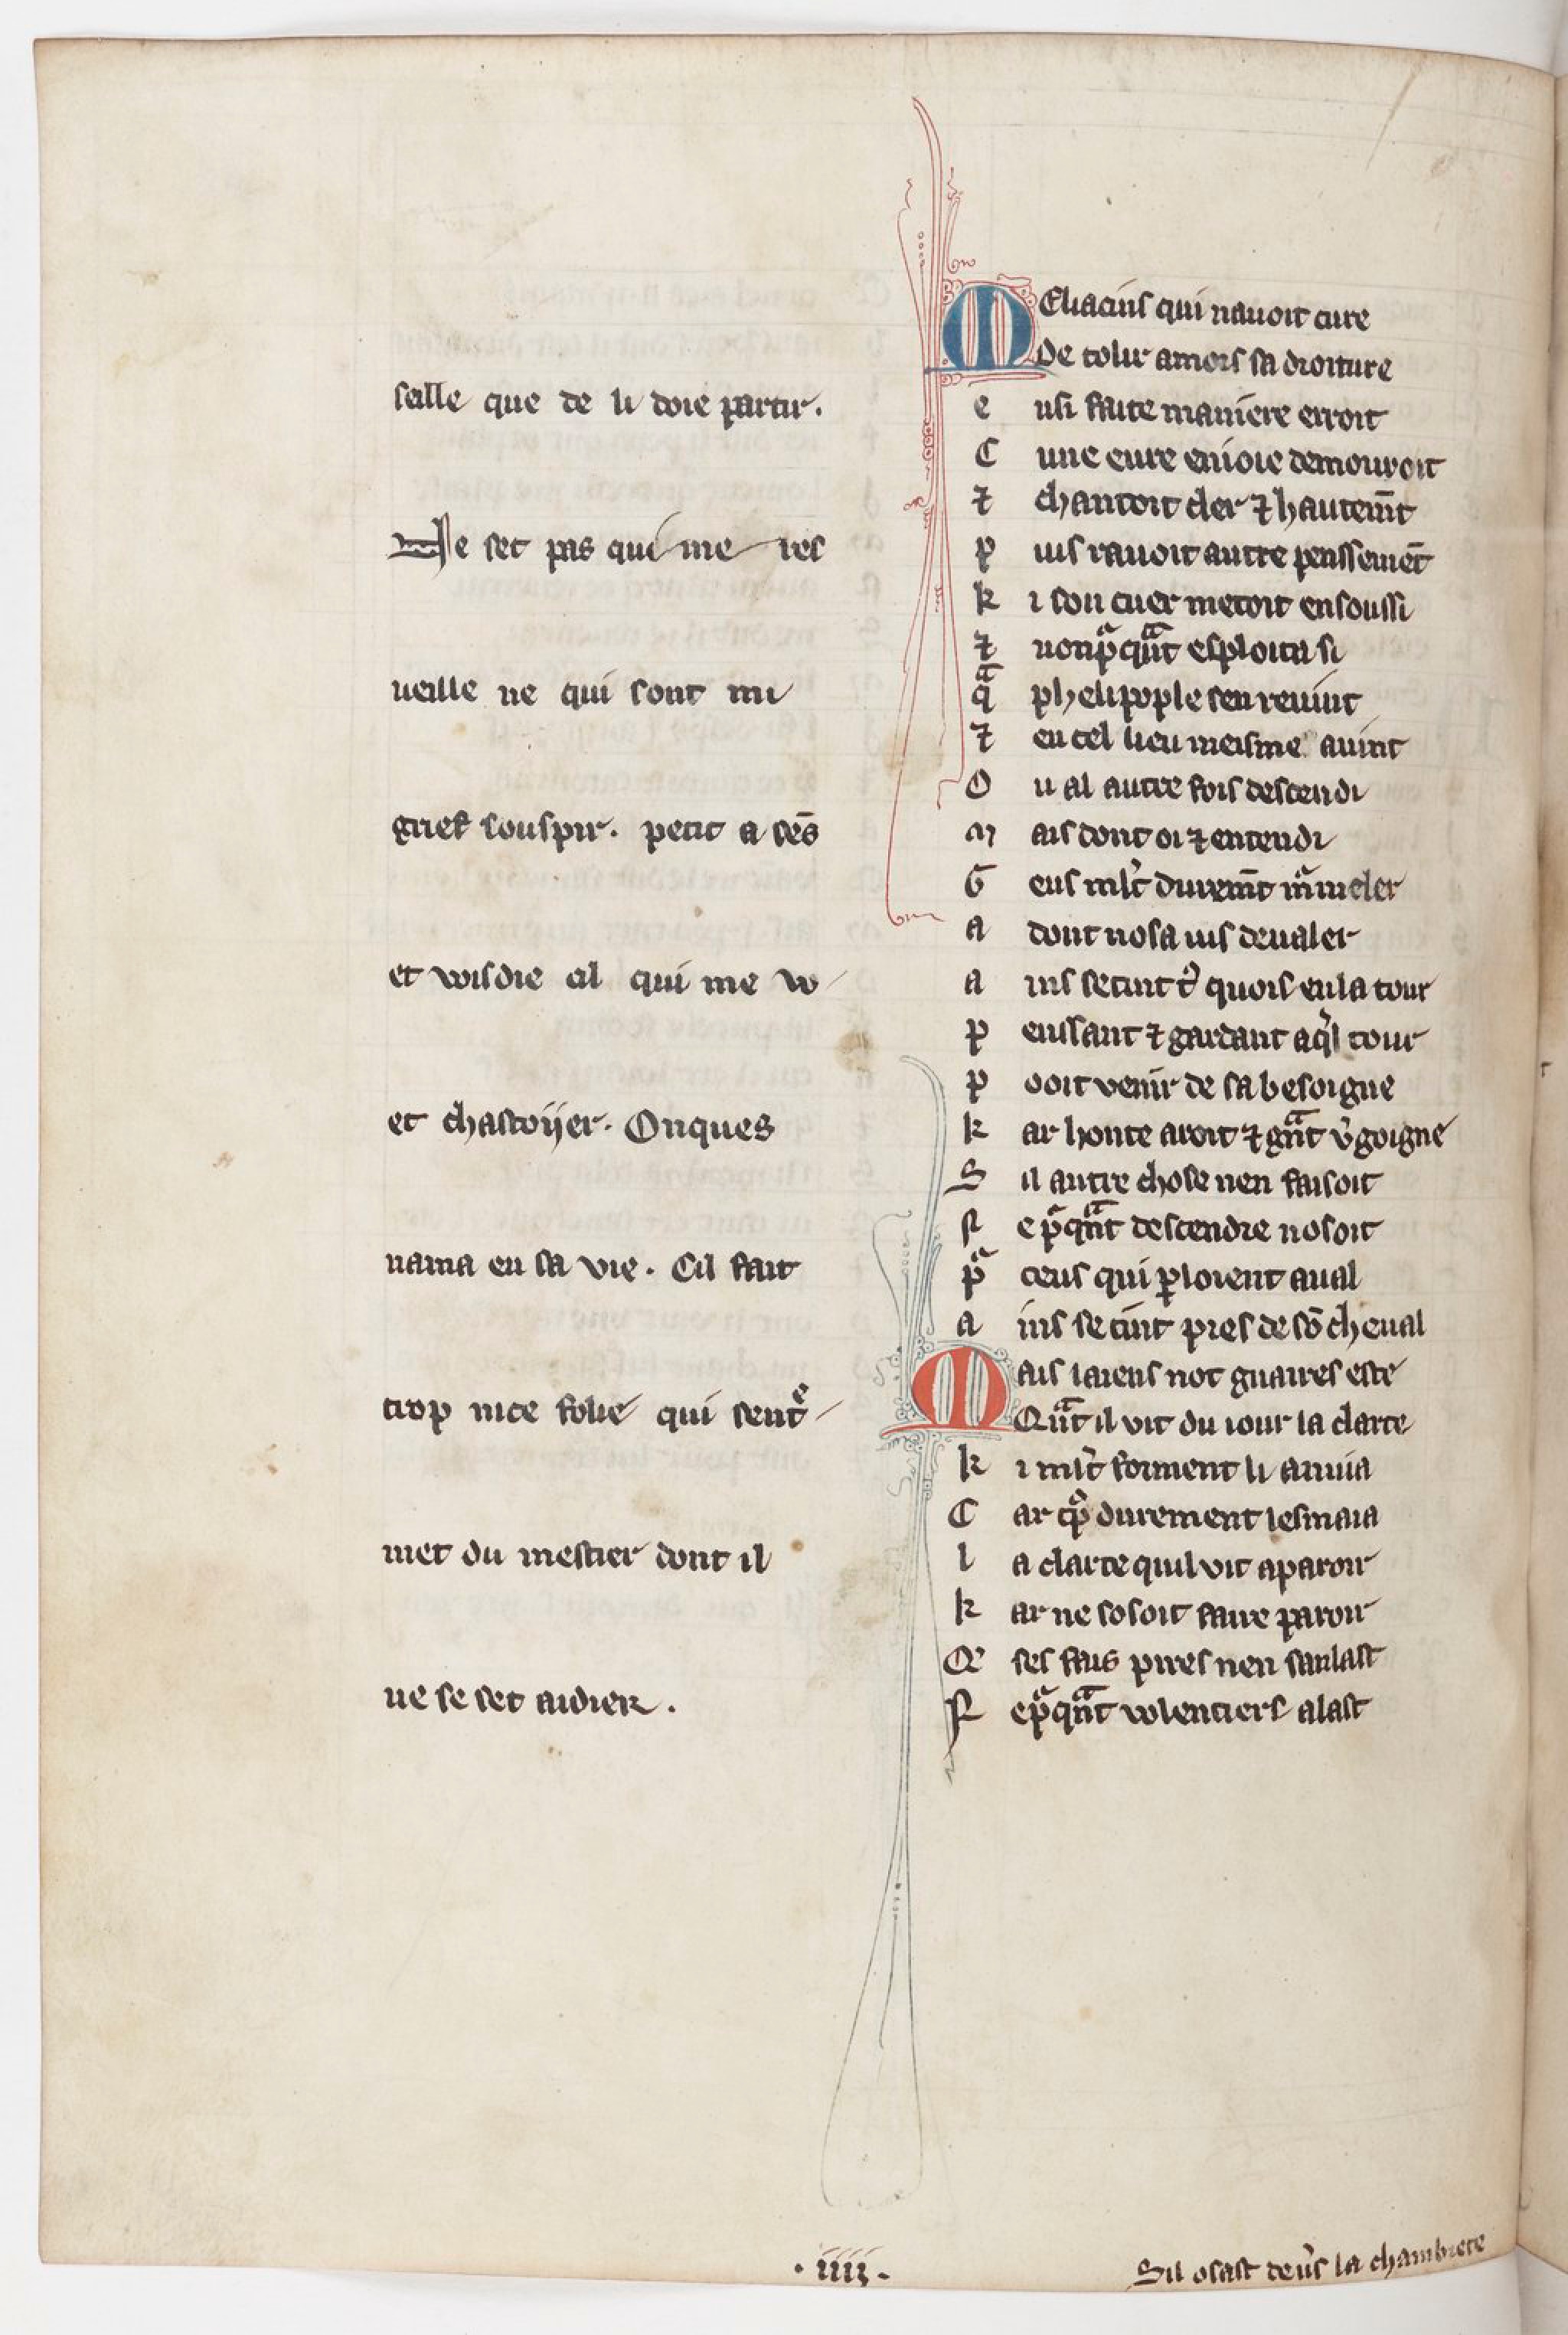 salle que de li doie partir.
Ne set pas qui me res
ueille ne qui sont mi
grief souspir. petit a sēs
et voisdie cil qui me vo
et chastoijer. Onques
nama en sa vie. Cil fait
trop nice folie qui sent
met du mestier dont il
ne se set aidier.
MEliacins qui nauoit cure
De tolir amors sa droiture
e nsi faite maniere erroit
C une eure en ioie demouroit
⁊ chantoit cler ⁊ hautem̄t
p uis rauoit autre penssemēt
k i son cuer metoit en soussi
⁊ nonp̃qñt esploita si
q̃ phelipople sen reuint
⁊ en cel lieu meisme auint
O u al autre fois descendi
m ais dont oi ⁊ entendi
G ens ml̃t durem̄t m̃meler
a dont nosa ius deualer
a ins se tint t᷒ quois en la tour
p enssant ⁊ gardant a q̃l tour
p ooit venir de sa besoigne
k ar honte aroit ⁊ gñt v̾goigne
S il autre chose nen faisoit
N e p̃qñt descendre nosoit
p̃ ceus qui ꝑloient aual
a ins se tint pres de sō cheual
Mais laiens not guaires este
Qñt il vit du iour la clarte
k i ml̃t forment li anuia
C ar t᷒p durement lesmaia
l a clarte quil vit aparoir
k ar ne sosoit faire paroir
Q̾ ses fais pires nen sanlast
N e p̃qñt volentiers alast
.iiij.
Sil osast deu̾s la chambrete